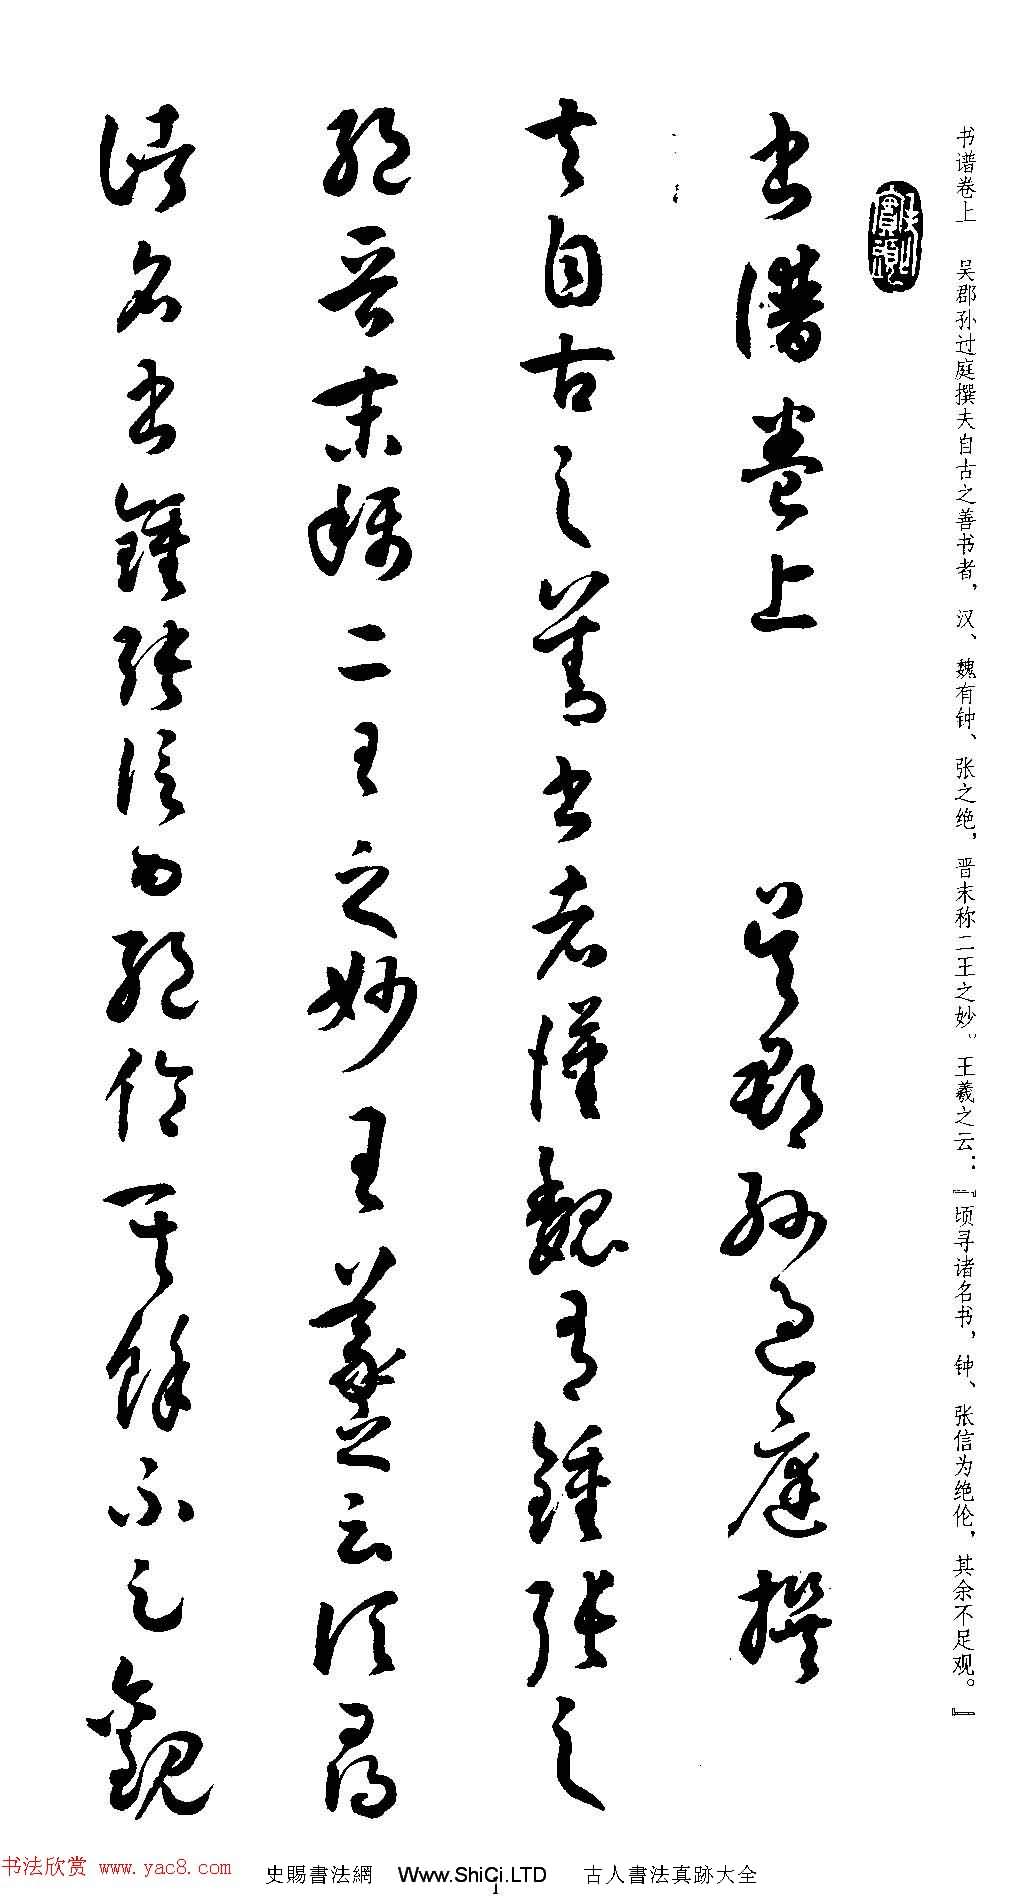 书谱卷上　吴郡孙过庭撰夫自古之善书者，汉、魏有钟、张之绝，晋末称二王之妙。王羲之云：『顷寻诸名书，钟、张信为绝伦，其余不足观。』
書譜卷上　吳郡孫過庭撰
夫自古之善書者漢魏有鍾張之
絕晉末稱二王之妙王羲之云頃尋
諸名書鍾張信為絕倫其餘不足觀
书法欣赏 www.yac8.com
史賜書法網 Www.ShiCi.LTD 古人書法真跡大全
1